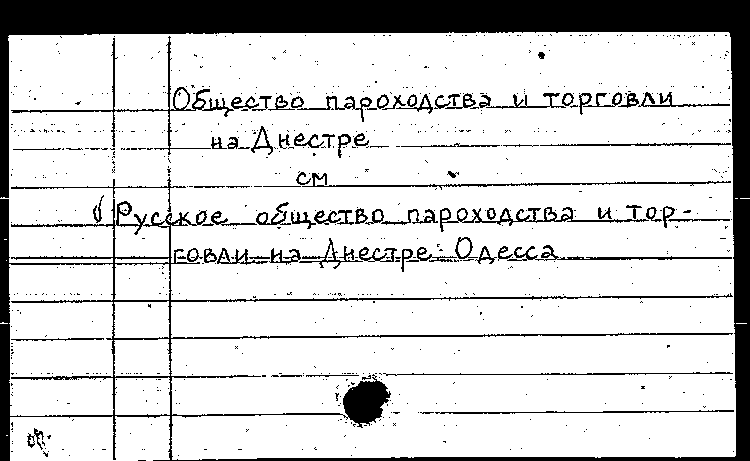 Общество пароходства и торговли
на Днестре
см
Русское общество пароходства и тор-
говли на Днестре. Одесса